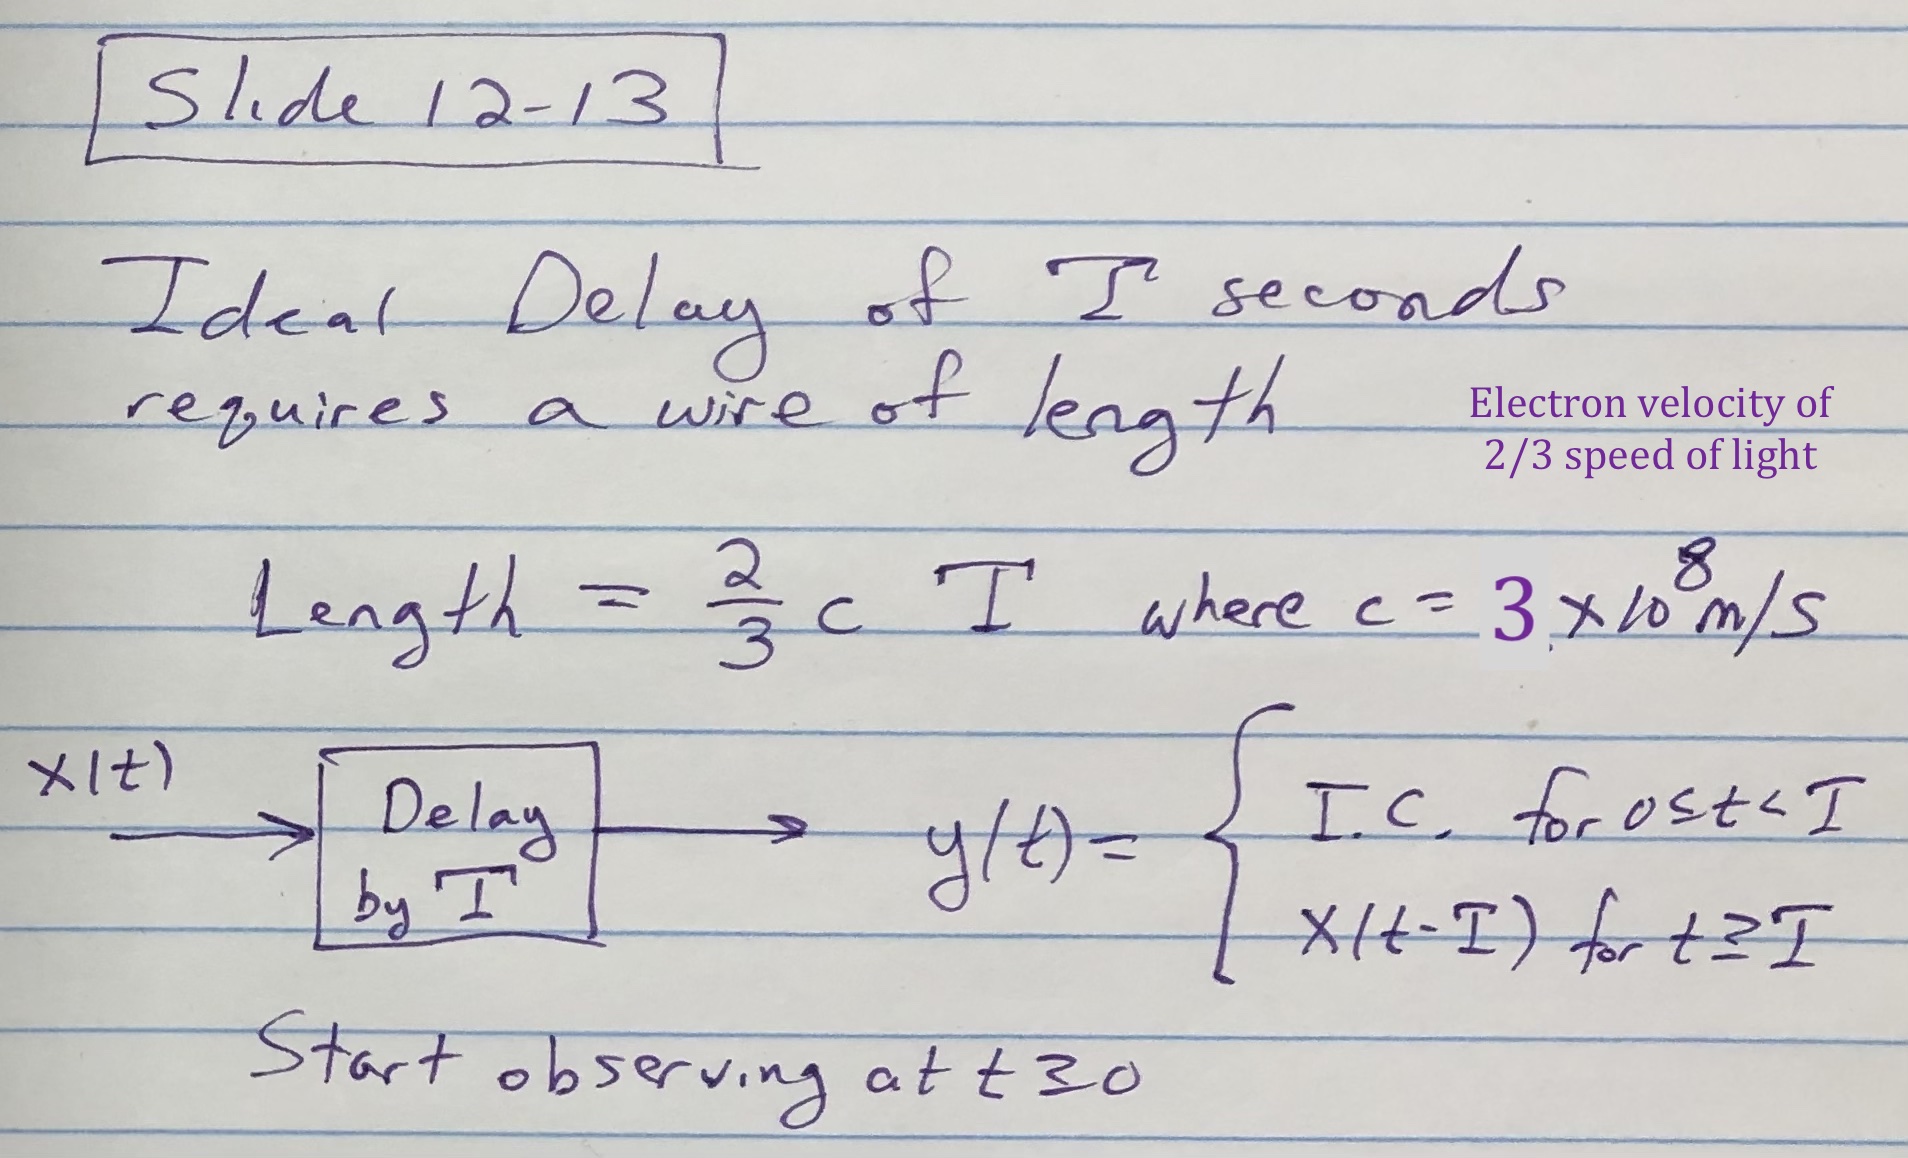 Slide 12-13
Ideal Delay of T seconds
requires a wire of length
Electron velocity of
2/3 speed of light
Length = 2/3 c T where c = 3 x 10^8 m/s
x(t)
Delay
by T
y(t) = { I.C. for 0 ≤ t < T
x(t-T) for t ≥ T
Start observing at t ≥ 0